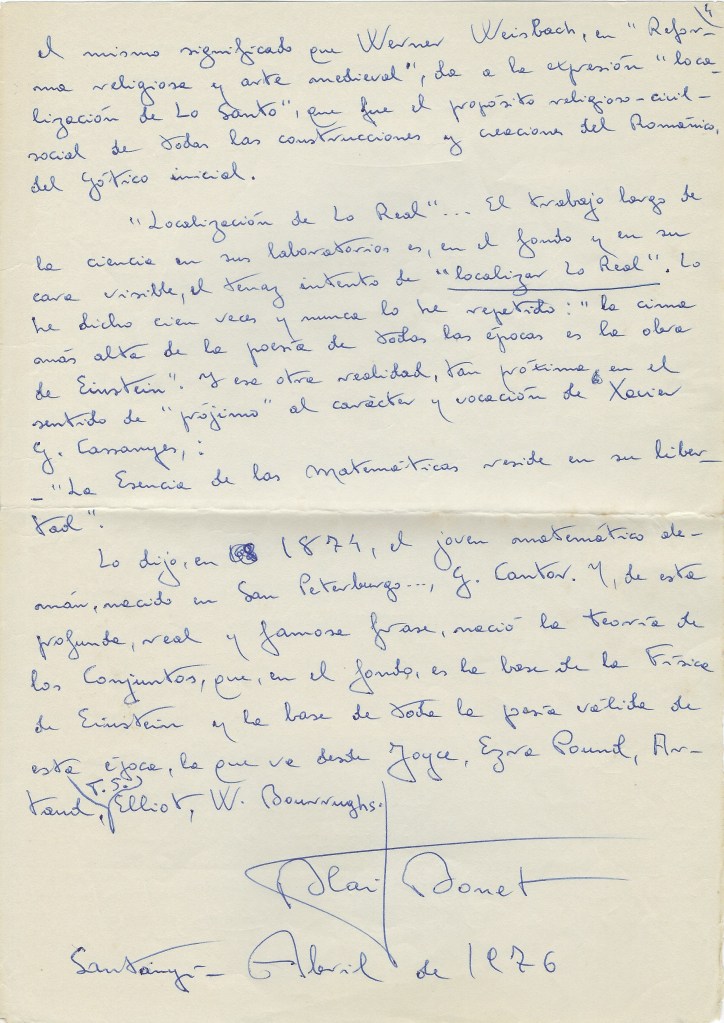 4
el mismo significado que Werner Weisbach, en "Refor-
ma religiosa y arte medieval", da a la expresión "loca-
lización de Lo Santo", que fue el propósito religioso-civil-
social de todas las construcciones y creaciones del Románico,
del gótico inicial.
"Localización de Lo Real"... El trabajo largo de
la ciencia en sus laboratorios es, en el fondo y en su
cara visible, el tenaz intento de "localizar Lo Real". Lo
he dicho cien veces y nunca lo he repetido: "la cima
más alta de la poesía de todas las épocas es la obra
de Einstein". Y esa otra realidad, tan próxima, en el
sentido de "prójimo" al carácter y vocación de Xavier
G. Cassanyes,:
-"La Esencia de las matemáticas reside en su liber-
tad".
Lo dijo, en 1874, el joven matemático ale-
mán, nacido en San Peterburgo..., G. Cantor. Y, de esta
profunda, real y famosa frase, nació la teoría de
los Conjuntos, que, en el fondo, es la base de la Física
de Einstein y la base de toda la poesía válida de
esta época, la que va desde Joyce, Ezra Pound, Ar-
taud, T.S. Elliot, W. Bourrughs.
Blai Bonet
Santanyí- Abril de 1976